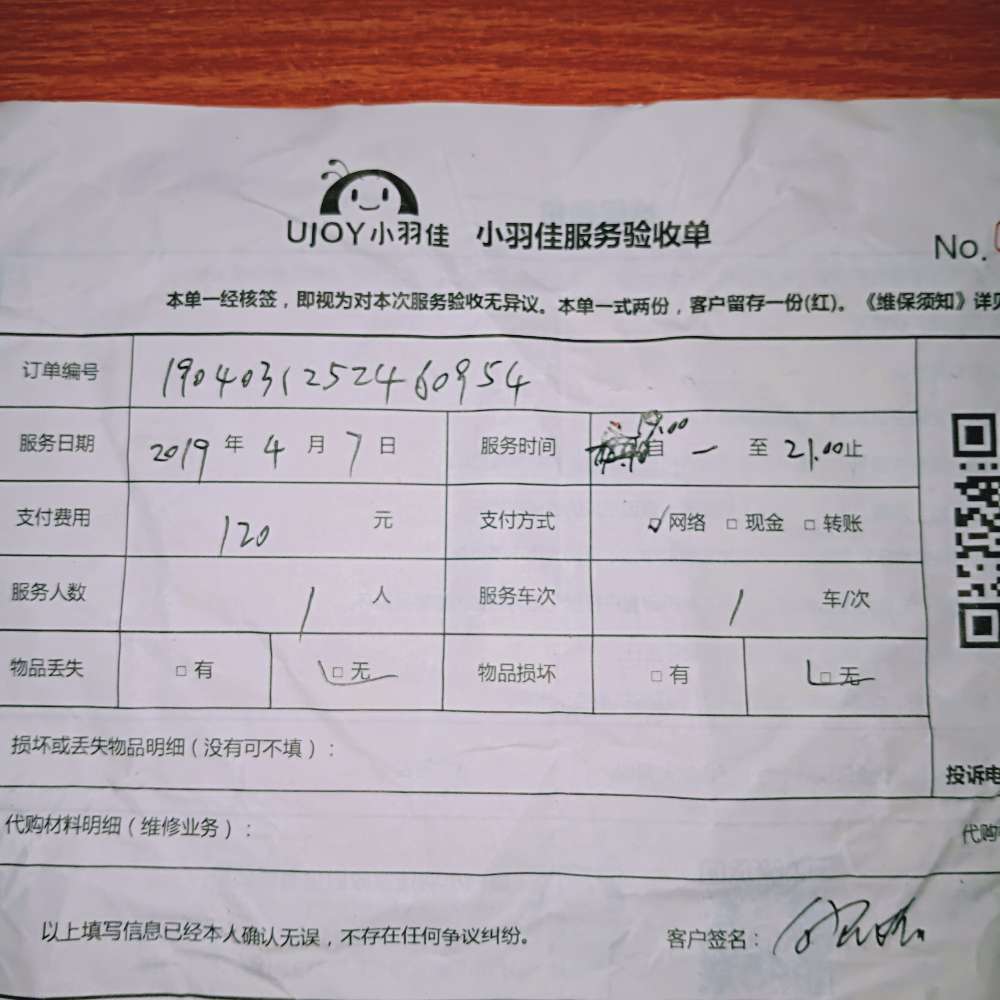 UJOY小羽佳 小羽佳服务验收单
No.
本单一经核签，即视为对本次服务验收无异议。本单一式两份，客户留存一份(红)。《维保须知》详见
订单编号 190403125246 0954
服务日期 2019年4月7日 服务时间 19.00自一至21.00止
支付费用 120元 支付方式 ☑网络 □现金 □转账
服务人数 1人 服务车次 1车/次
物品丢失 □有 □无 物品损坏 □有 □无
损坏或丢失物品明细（没有可不填）：
投诉电
代购材料明细（维修业务）：
代购
以上填写信息已经本人确认无误，不存在任何争议纠纷。 客户签名：